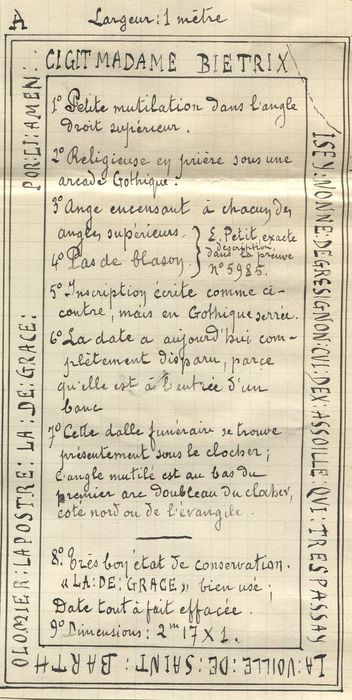 A
Largeur : 1 mètre
CIGIT MADAME BIETRIX
ISEY : NONNE : DE GRESIGNON : CVI : DEX : ASSOILLE : QVI : TRESPASSAY
LA : VOILLE : DE : SAINT : BARTH
OLOMIER : LAPOSTRE : LA : DE : GRACE :
POR : EI : AMEN :
1º Petite mutilation dans l'angle
droit supérieur.
2º Religieuse en prière sous une
arcade Gothique.
3º Ange encensant à chacun des
angles supérieurs.
4º Pas de blason.
E. Petit, exacte
description
dans la preuve
Nº 5985.
5º Inscription écrite comme ci-
contre, mais en Gothique serrée.
6º La date a aujourd'hui com-
plètement disparu, parce
qu'elle est à l'entrée d'un
banc
7º Cette dalle funéraire se trouve
présentement sous le clocher ;
l'angle mutilé est au bas du
premier arc doubleau du clocher,
côté nord ou de l'évangile.
8º Très bon état de conservation.
« LA : DE : GRACE » bien usé ;
Date tout à fait effacée.
9º Dimensions : 2m 17 X 1.